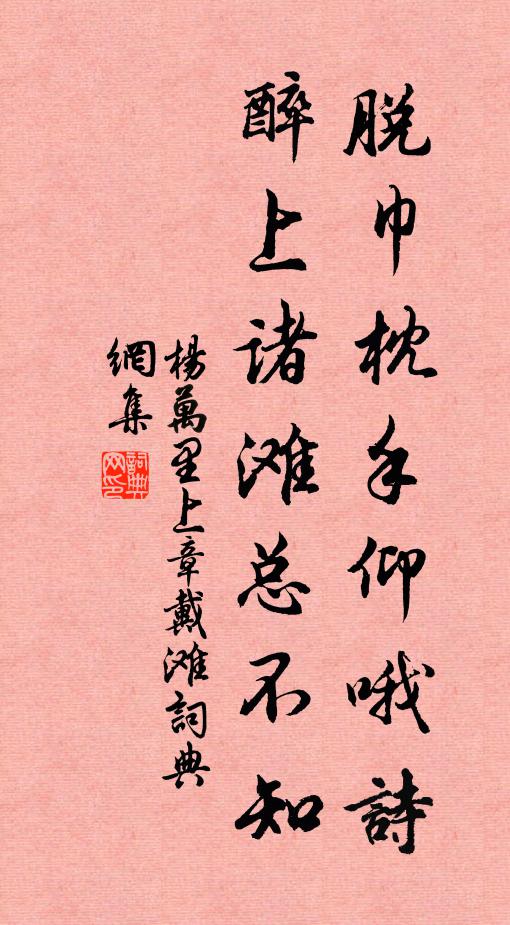 脱巾枕手仰哦詩
醉上诸滩总不知
楊萬里上章戴滩詞典
網集
詞典
网印